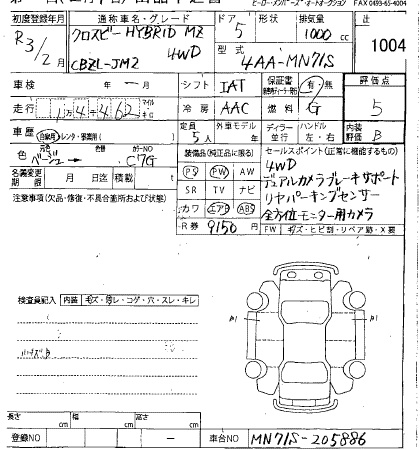 ヒーロー・メンバーズ・オートオークション FAX 0493-65-4004
初度登録年月 通称車名・グレード ドア 形状 排気量 出
R3/2月 クロスビー HYBRID MZ 4WD 5 1000cc 1004
CBZL-JM2 型式 4AA-MN71S
車検 年 ー 月 シフト IAT 保証書 有・無 評価点
走行 1万4千462 冷房 AAC 燃料 G 5
車歴 自家用・レンタ・事業用 定員 5人 外車モデル年 ディーラー・並行 ハンドル 左・右 内装評価 B
色 元色 ベージュ→ 色替 カラーNO C7G 装備品(純正品に限る) セールスポイント(正常に機能するもの)
名義変更期限 月 日迄 積載 t PS PW AW 4WD
注意事項(欠品・修復・不具合箇所および状態) SR TV ナビ デュアルカメラブレーキサポート
カワ エアB ABS リヤパーキングセンサー
R券 9150円 全方位モニター用カメラ
FW キズ・ヒビ割・リペア跡・X要
検査員記入 内装 キズ・汚レ・コゲ・穴・スレ・キレ
A1 A1
長さ cm 幅 cm 高さ cm
登録NO ー 車台NO MN71S-205886